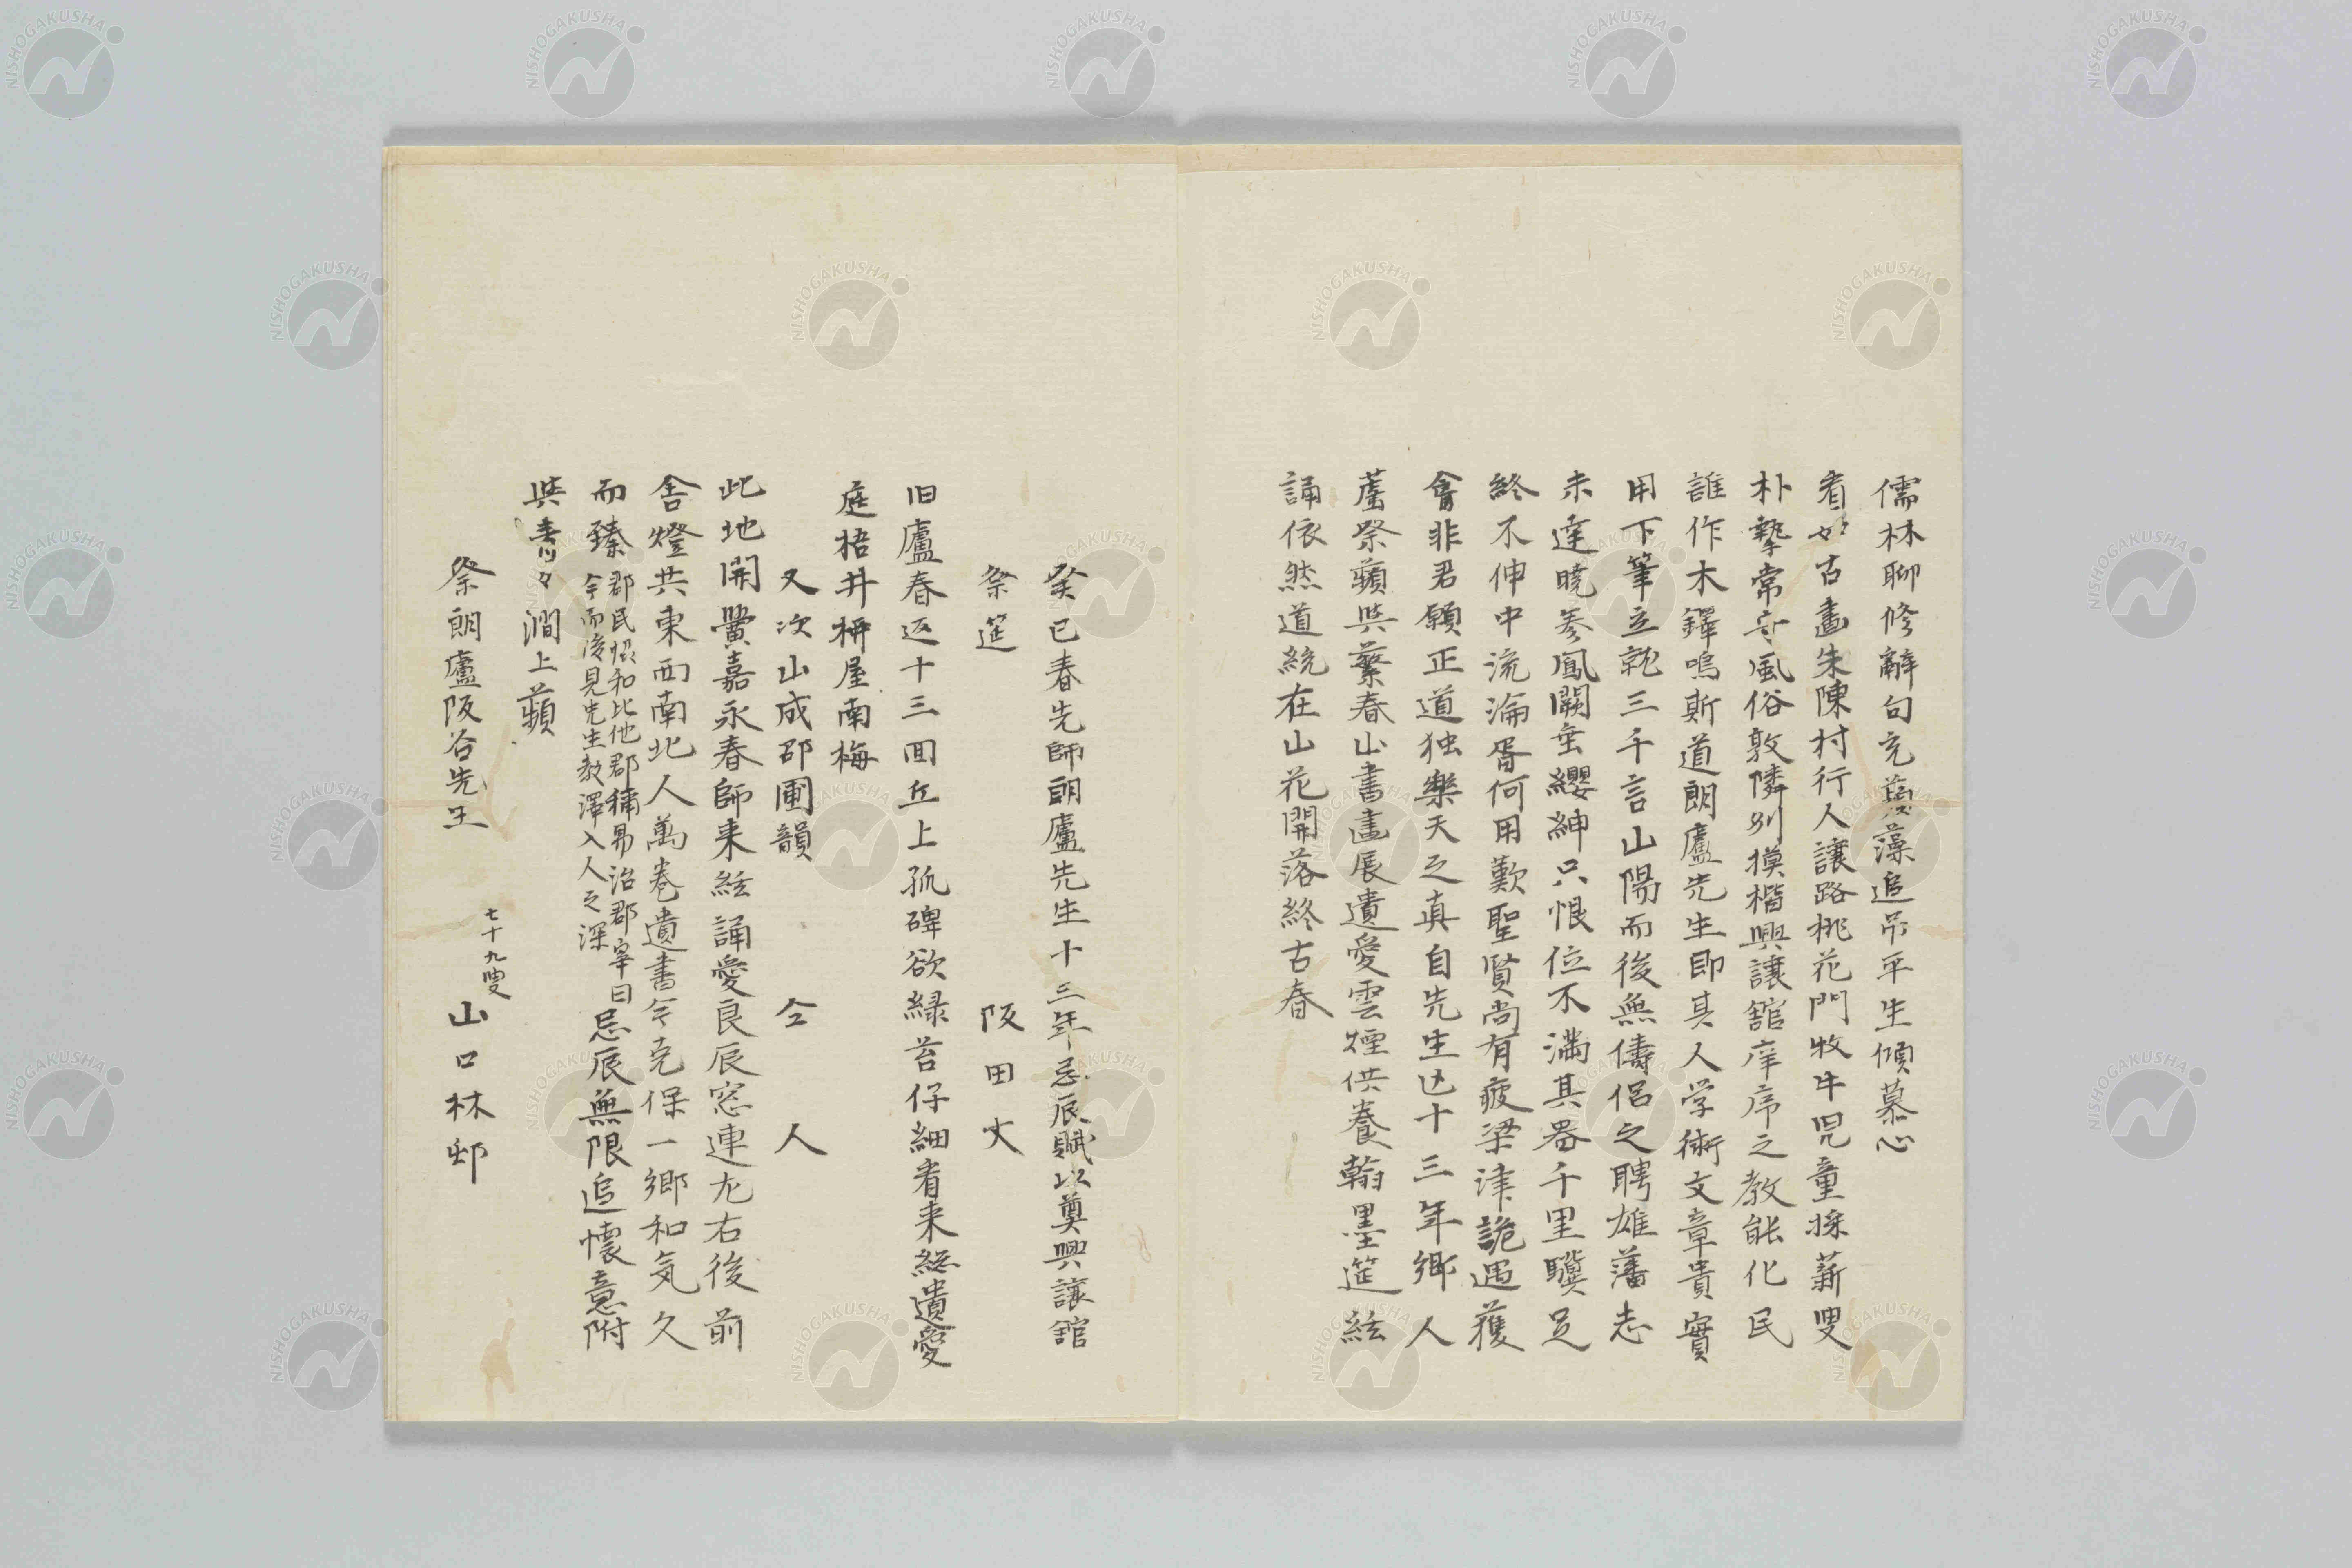 儒林聊修辭句充蘋藻追吊平生傾慕心
看如古畫朱陳村行人讓路桃花門牧牛児童採薪叟
朴摯常守風俗敦隣別摸楷興讓舘庠序之教能化民
誰作木鐸鳴斯道朗廬先生即其人学術文章貴實
用下筆立就三千言山陽而後無儔侶之聘雄藩志
未達暁参鳳闕垂纓紳只恨位不満其器千里驥足
終不伸中流淪胥何用歎聖賢尚有疲梁津詭遇獲
禽非君願正道独樂天之真自先生亡十三年鄉人
薦祭蘋與蘩春山書畫展遺愛雲煙供養翰墨筵絃
誦依然道統在山花開落終古春
癸巳春先師朗廬先生十三年忌辰賦以奠興讓舘
祭筵
阪田丈
旧廬春返十三回丘上孤碑欲緑苔仔細看来総遺愛
庭梧井栟屋南梅
又次山成邵圃韻
仝人
此地開黌嘉永春師来絃誦愛良辰窓連尢右後前
舎燈共東西南北人萬巻遺書今克保一鄉和気久
而臻 郡民恊和比他郡稱易治郡宰曰
今而後見先生教澤入人之深 忌辰無限追懐意附
與青々澗上蘋
祭朗廬阪谷先生
七十九叟
山口林邨
NISHOGAKUSHA